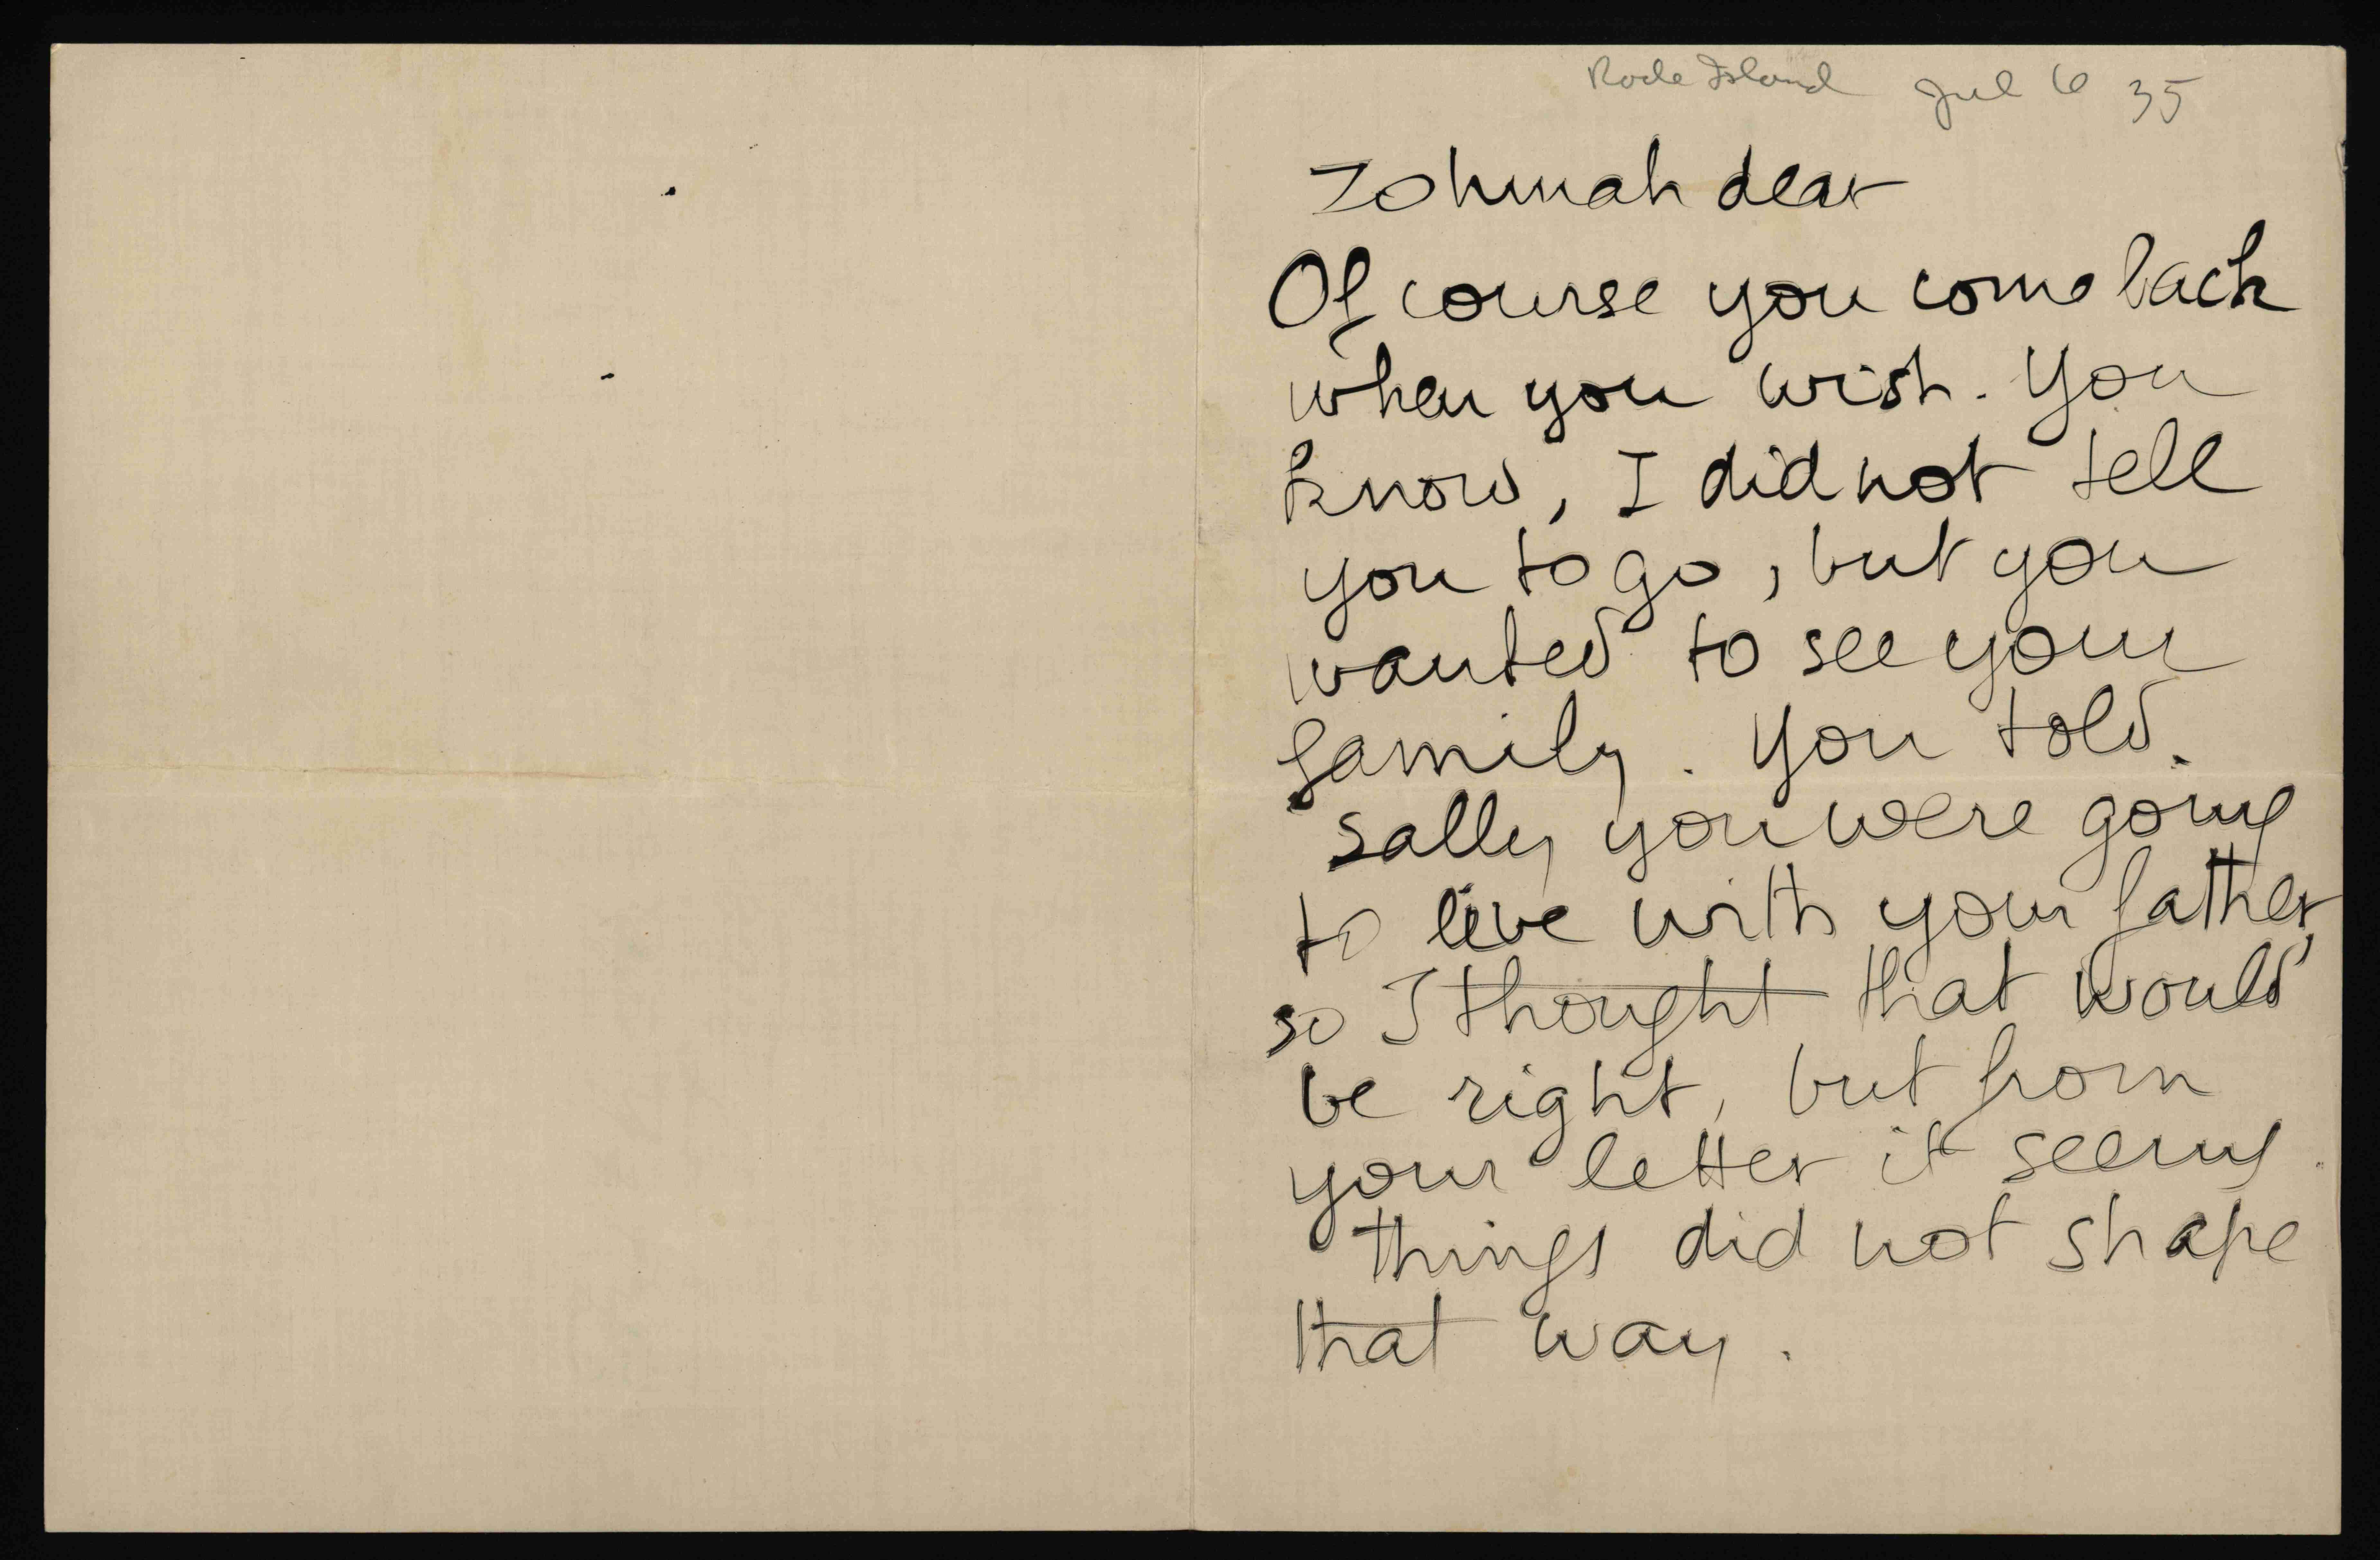 Rode Island Jul 6 35
Zohmah dear
Of course you come back
when you wish. You
know, I did not tell
you to go, but you
wanted to see your
family. You told
Sally you were going
to live with your father,
so I thought that would
be right, but from
your letter it seems
things did not shape
that way.